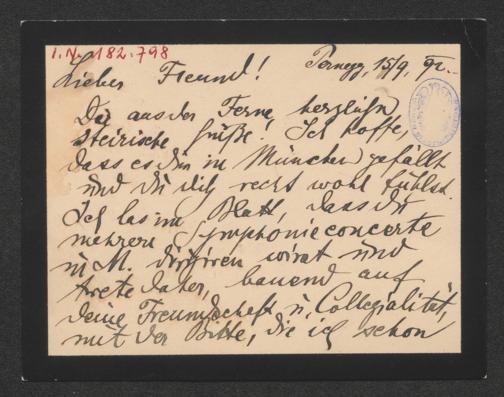 I.N. 182.798
Lieber Freund!
Pernegg, 15/9. 92.
Dir aus der Ferne herzliche
steirische Grüße! Ich hoffe,
dass es dir in München gefällt
und du dich recht wohl fühlst.
Ich las im Blatt, dass du
mehrere Symphonieconcerte
in M. dirigiren wirst und
trete daher, bauend auf
deine Freundschaft u. Collegialität,
mit der Bitte, die ich schon